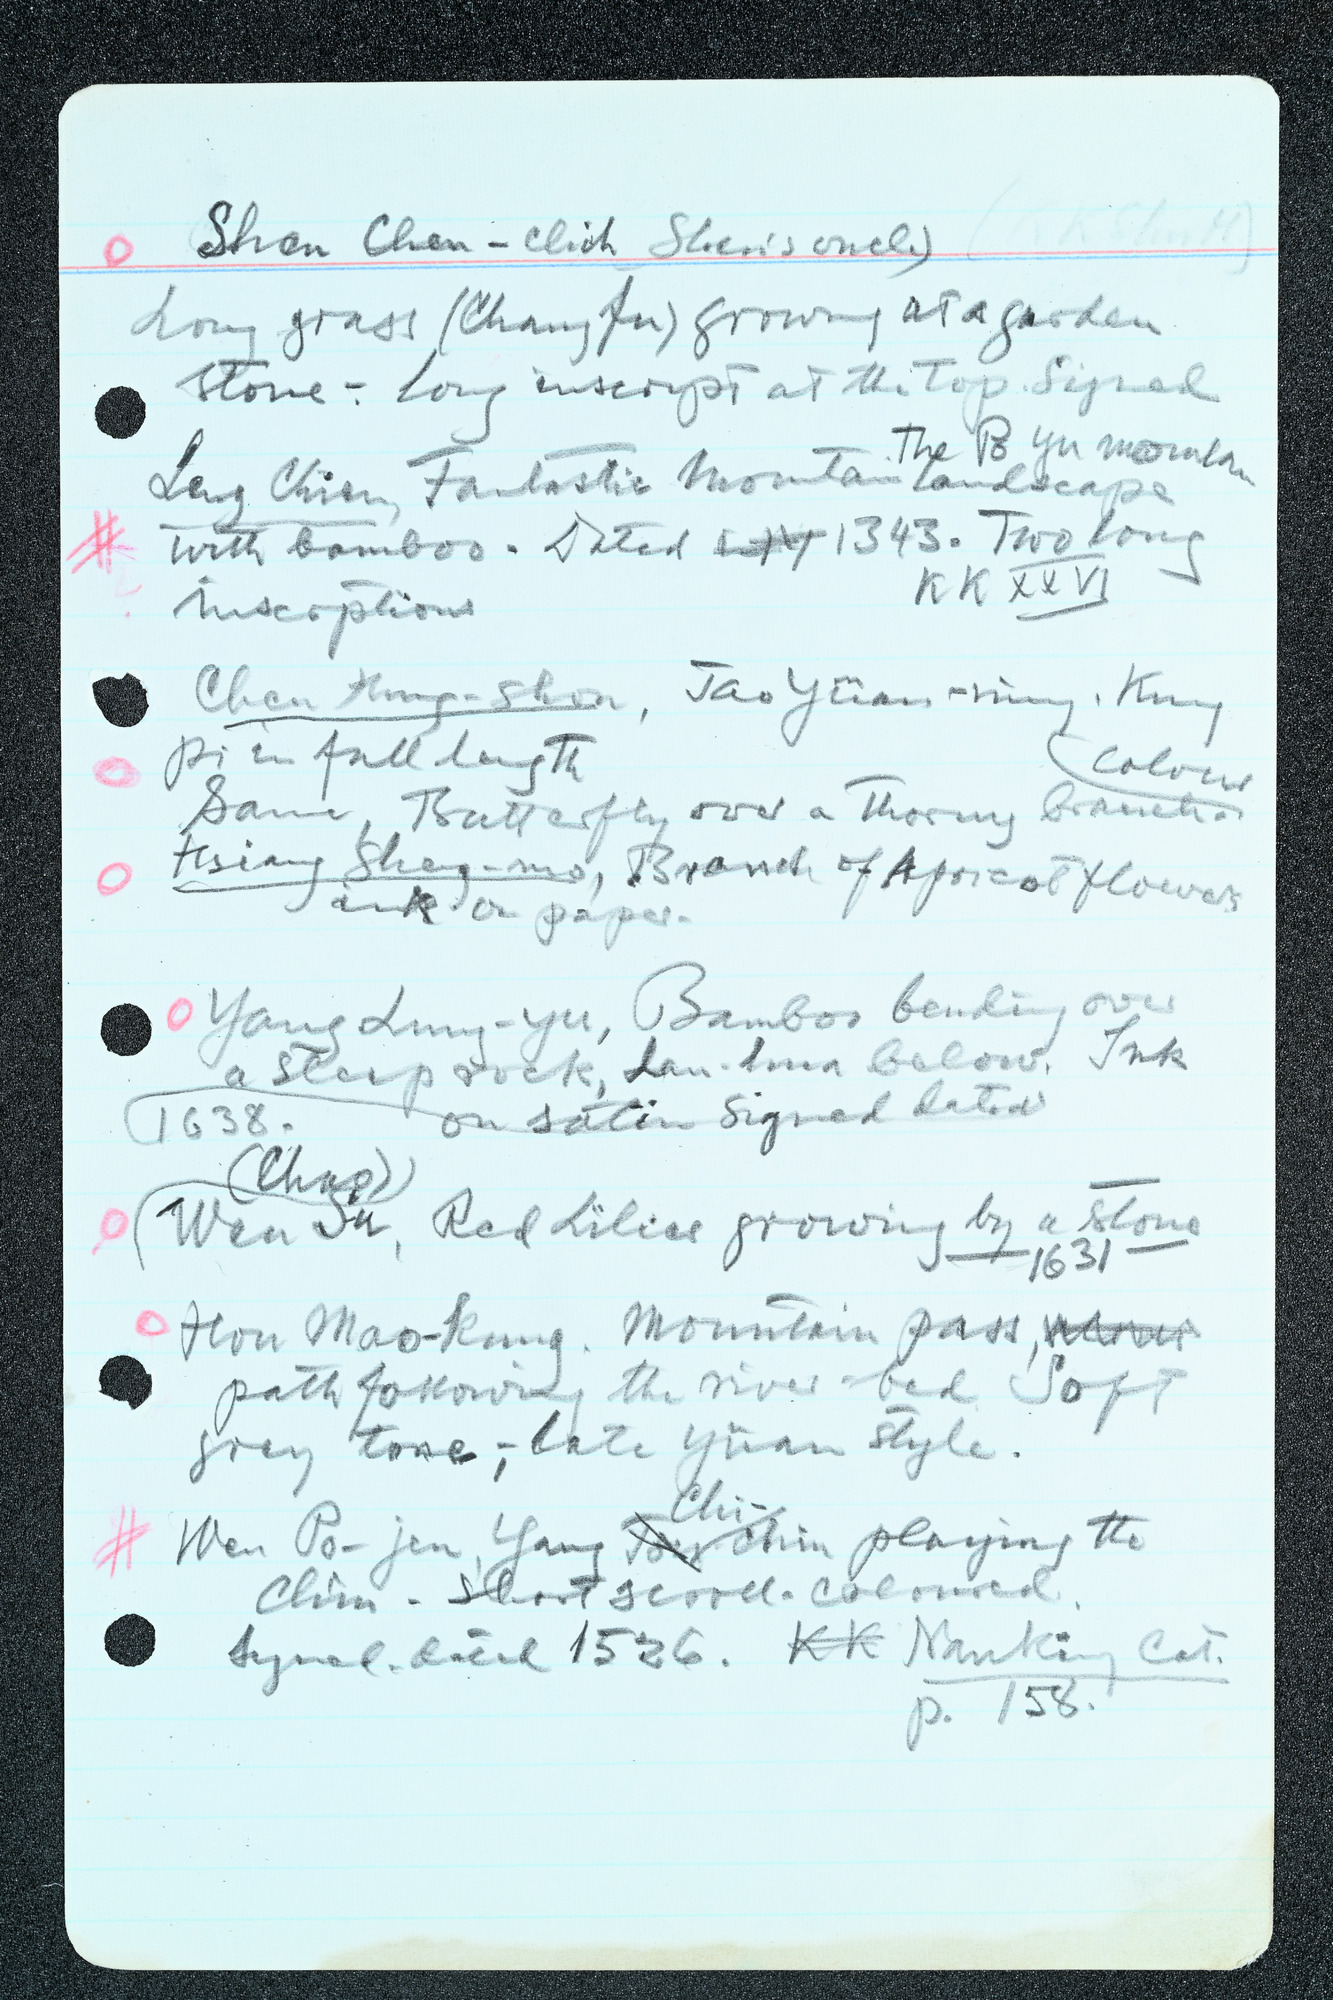 Shen Chen - chich (Shen's uncle)
Long grass (Chang fu) growing at a garden
stone - Long inscript at the top. Signed
The B Yu mountain
Leng Chien, Fantastic Mountain landscape
with bamboo. Dated 1343. Two long
inscriptions KK XXVI
Chen Hung-shou, Tao Yüan-ming. Kung
pi in full length
(colour
Same, Butterfly over a thorny branch
Hsiang Sheng-mo, Branch of Apricot flowers
ink on paper.
Yang Lung-yu, Bamboo bending over
a steep rock, Lan-hua below. Ink
1638. on satin Signed dated
(Chao)
Wen Su, Red Lilies growing by a stone
1631
Hou Mao-kung. Mountain pass,
path following the river-bed Soft
grey tone, - Late Yüan style.
Chi-
Wen Po-jen, Yang Chin playing the
Chin - Short scroll. coloured.
Signed. dated 1526. KK Nanking Cat.
p. 158.